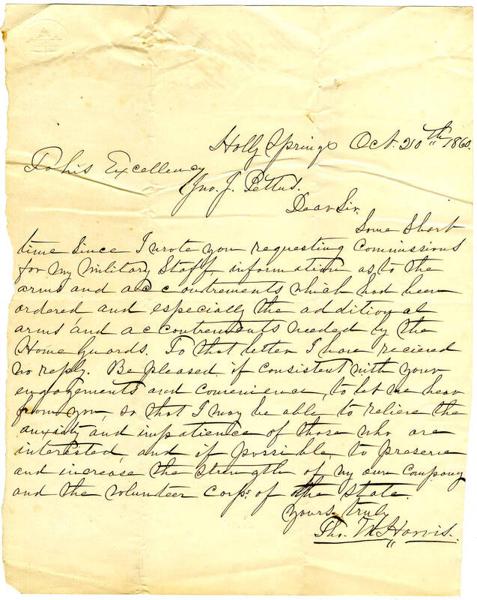 Holly Springs Oct. 20th 1860.
To his Excellency
Jno. J. Pettus.
Dear Sir.
Some Short
time since I wrote you requesting Commissions
for my Military Staff, information as to the
arms and accoutrements which had been
ordered and especially the additional
arms and accoutrements needed by the
Home Guards. To that letter I have recieved
no reply. Be pleased if consistent with your
engagements and convenience, to let me hear
from you, so that I may be able to relieve the
anxiety and impatience of those who are
interested, and if possible, to preserve
and increase the strength of my own Company
and the volunteer corps. of the State.
Yours truly
Tho. W. Harris.